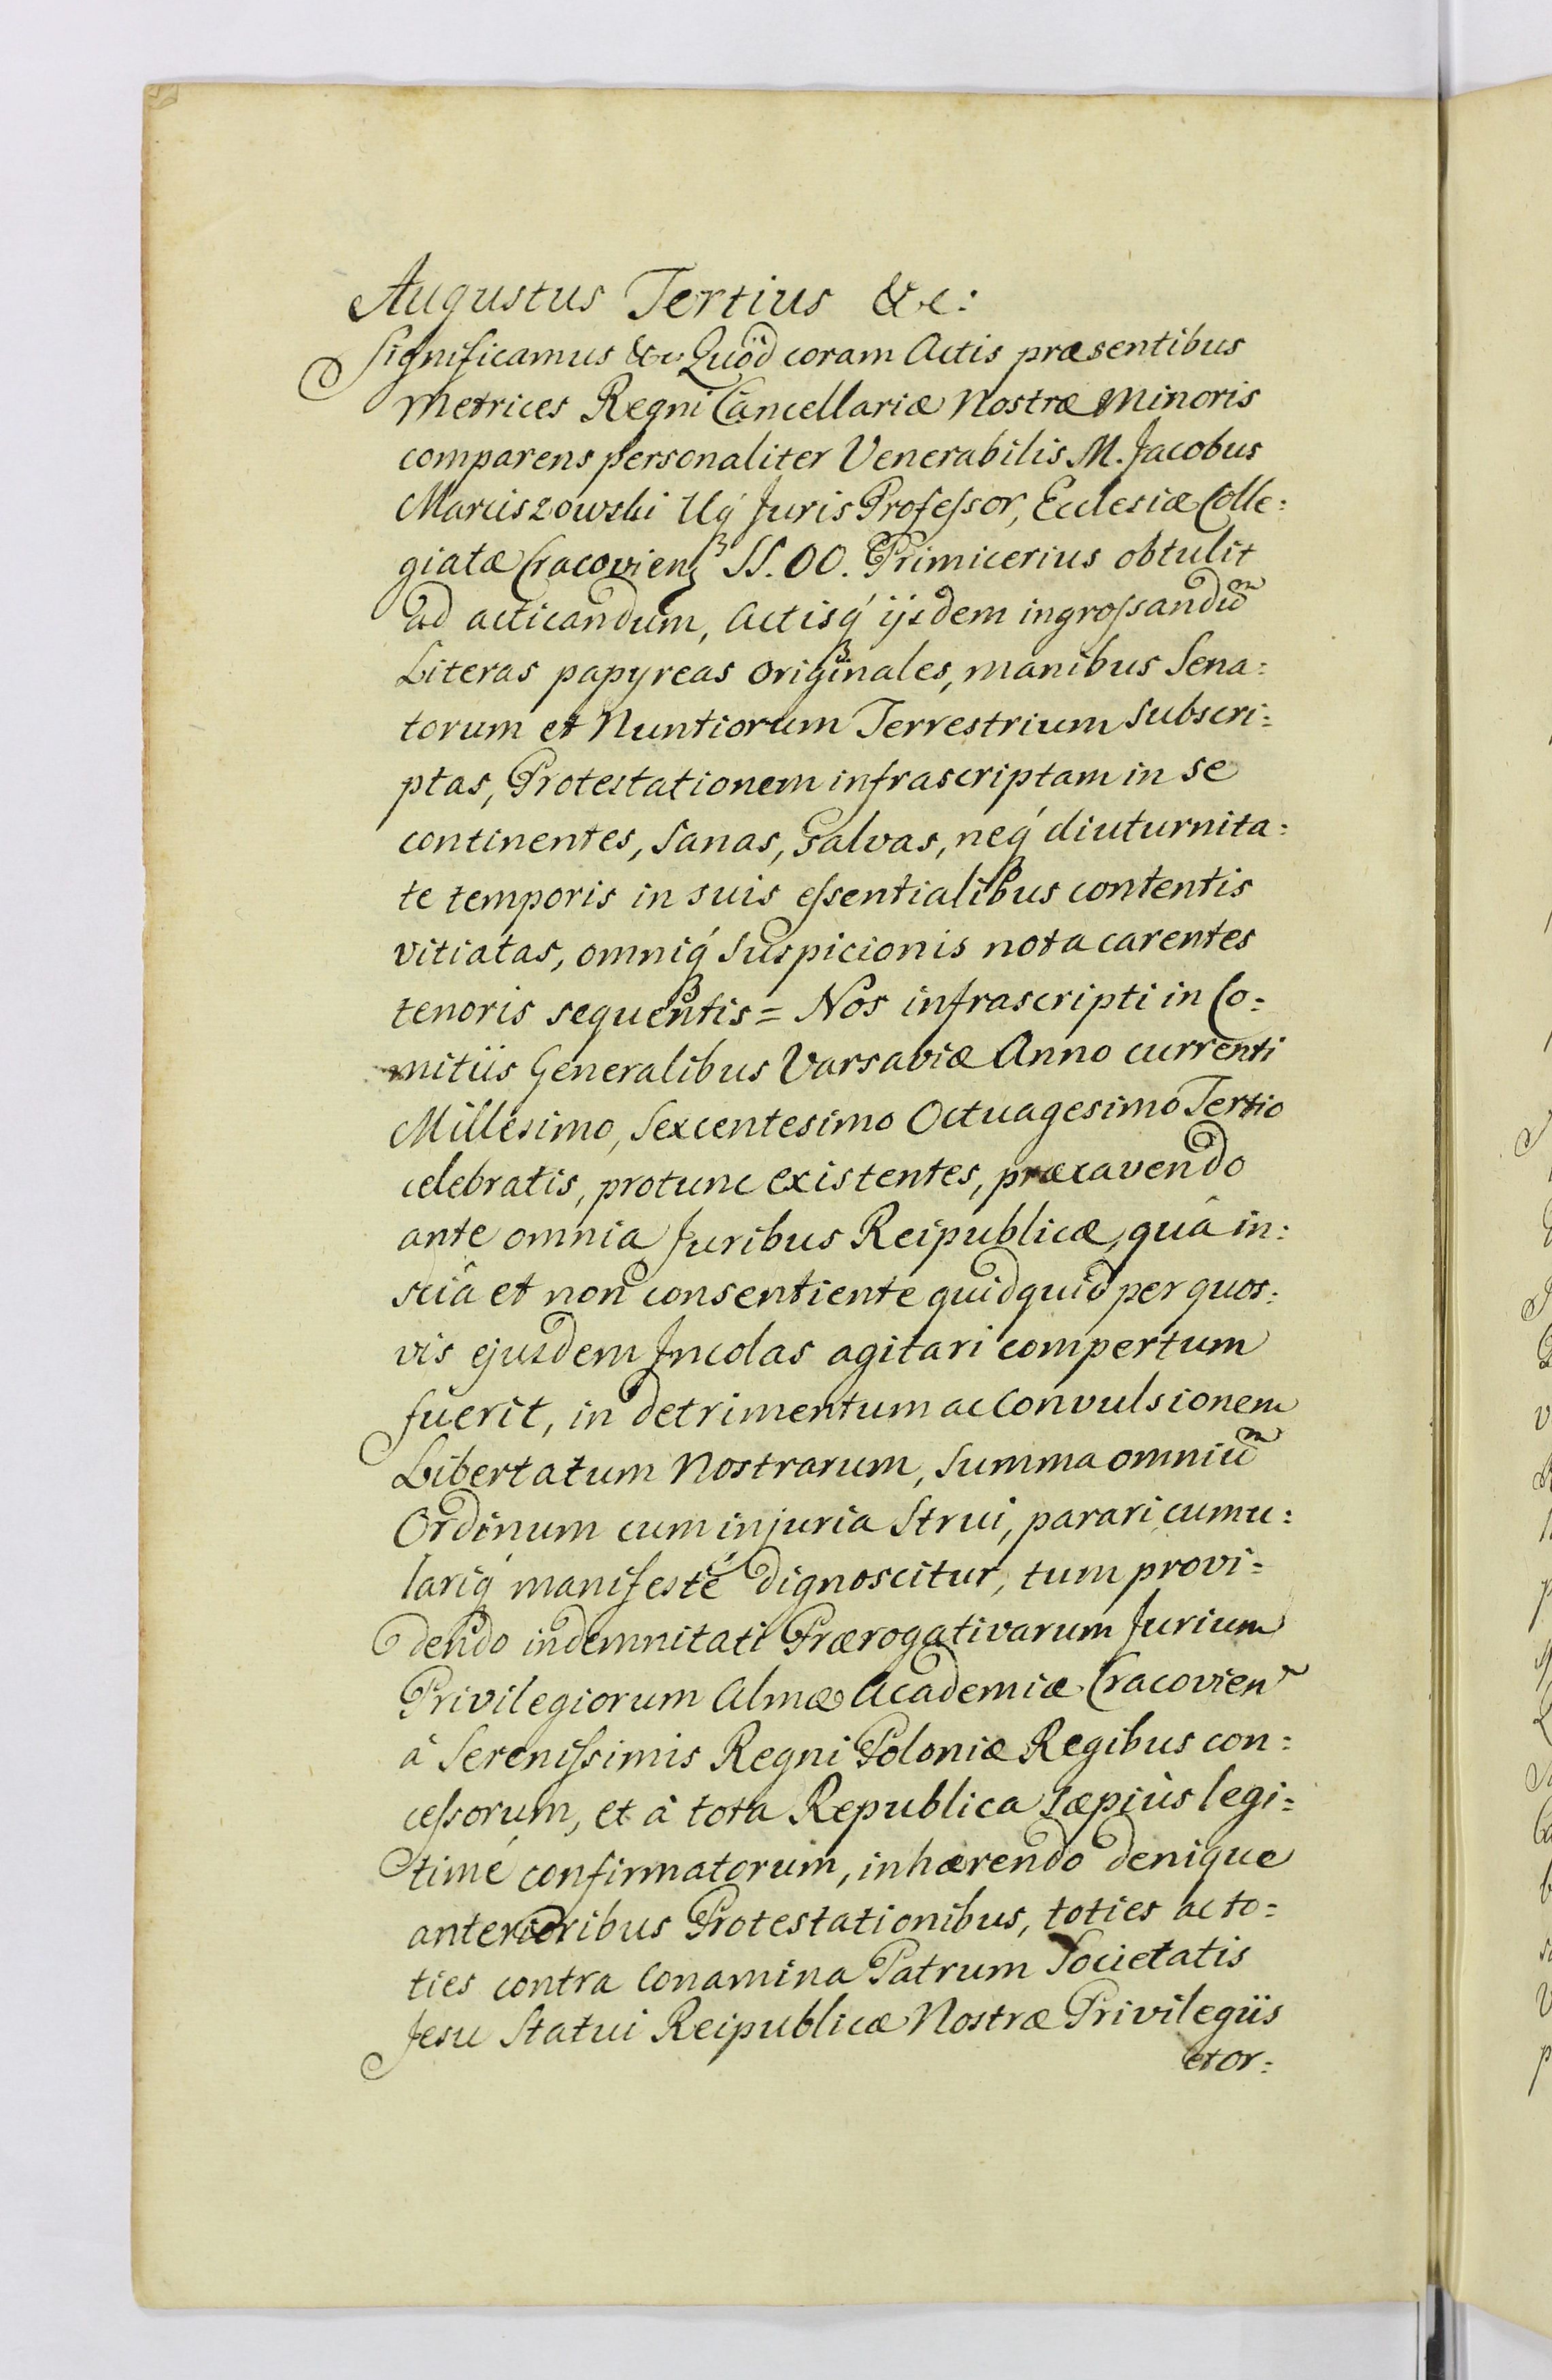 Augustus Tertius &c:
Significamus &c Quòd coram Actis præsentibus
Metrices Regni Cancellariæ Nostræ Minoris
comparens personaliter Venerabilis M. Jacobus
Marciszowski Uq́ Juris Profeſsor, Ecclesiæ Colle:
giatæ Cracovienꝫ SS. OO. Primicerius obtulit
ad acticandum, Actisq́ ijsdem ingroſsandũ
Literas papyreas originales, manibus Sena:
torum et Nuntiorum Terrestrium Subscri:
ptas, Protestationem infrascriptam in se
continentes, Sanas, Salvas, neq́ diuturnita:
te temporis in suis eſsentialibus contentis
vitiatas, omniq́ Suspicionis nota carentes
tenoris sequentis = Nos infrascripti in Co:
mitiis Generalibus Varsaviæ Anno currenti
Millesimo, Sexcentesimo Octuagesimo Tertio
celebratis, protunc existentes, præcavendo
ante omnia Juribus Reipublicæ, quâ in:
sciâ et non consentiente quidquid per quos:
vis ejusdem Incolas agitari compertum
fuerit, in detrimentum ac Convulsionem
Libertatum Nostrarum, Summa omniũ
Ordinum cum injuria Strui, parari, cumu:
lariq́ manifestè dignoscitur, tum provi:
dendo indemnitati Prærogativarum Jurium
Privilegiorum Almæ Academiæ Cracovien
à Sereniſsimis Regni Poloniæ Regibus con:
ceſsorum, et à tota Republica Sæpiùs legi:
timé confirmatorum, inhærendo denique
anterioribus Protestationibus, toties ac to:
ties contra Conamina Patrum Societatis
Jesu Statui Reipublicæ Nostræ Privilegiis
et or: